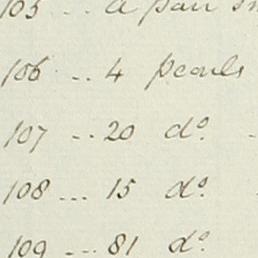 105 ... a pair
106 ... 4 pearls
107 ... 20 dº.
108 ... 15 dº.
109 ... 81 dº.